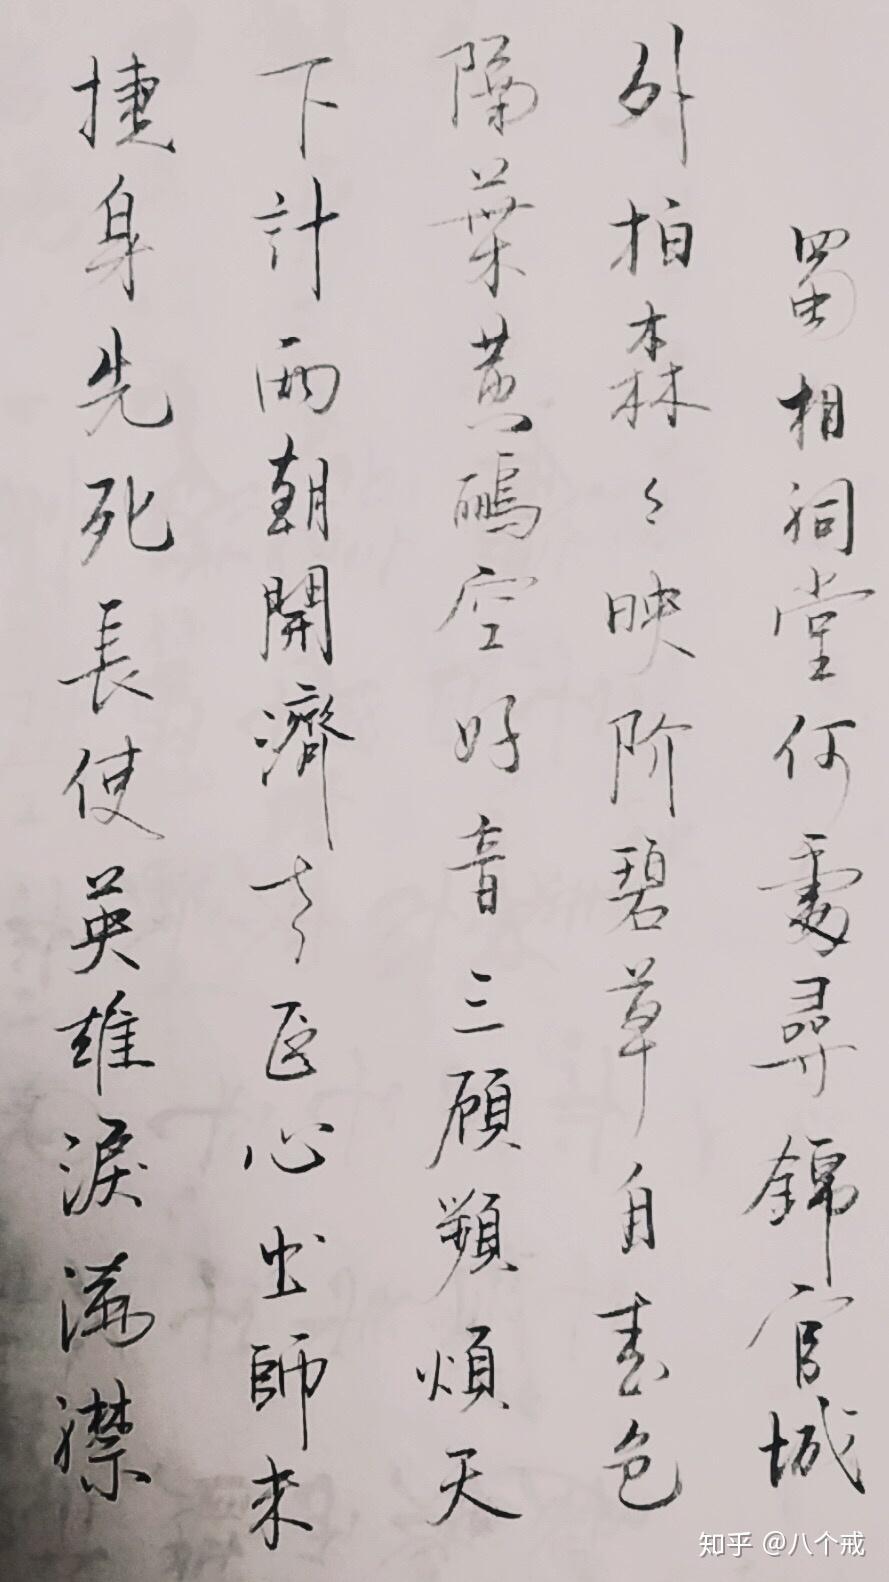 蜀相祠堂何處尋錦官城
外柏森々映阶碧草自春色
隔葉黃鸝空好音三顾頻煩天
下計兩朝開濟老臣心出師未
捷身先死長使英雄淚滿襟
知乎 @八个戒